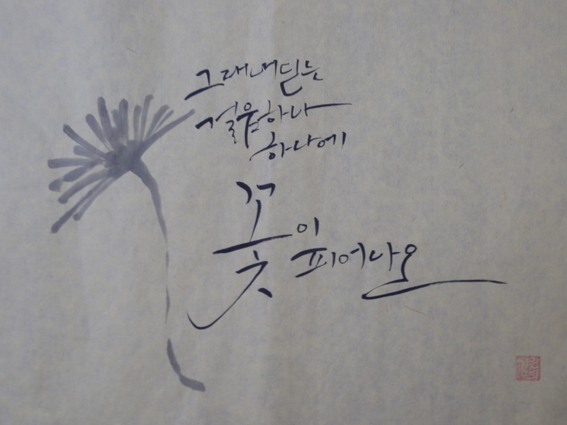 그대 내딛는
걸음 하나
하나에
꽃이
피어나오